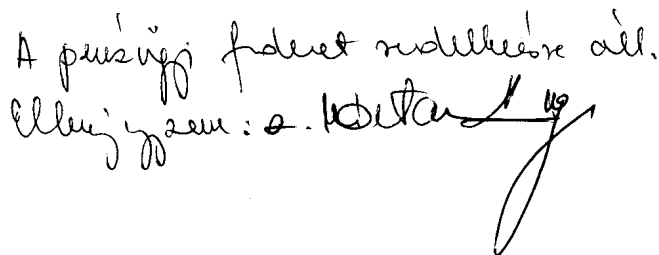 A pénzügyi fedezet rendelkezésre áll.
Ellenjegyzem: